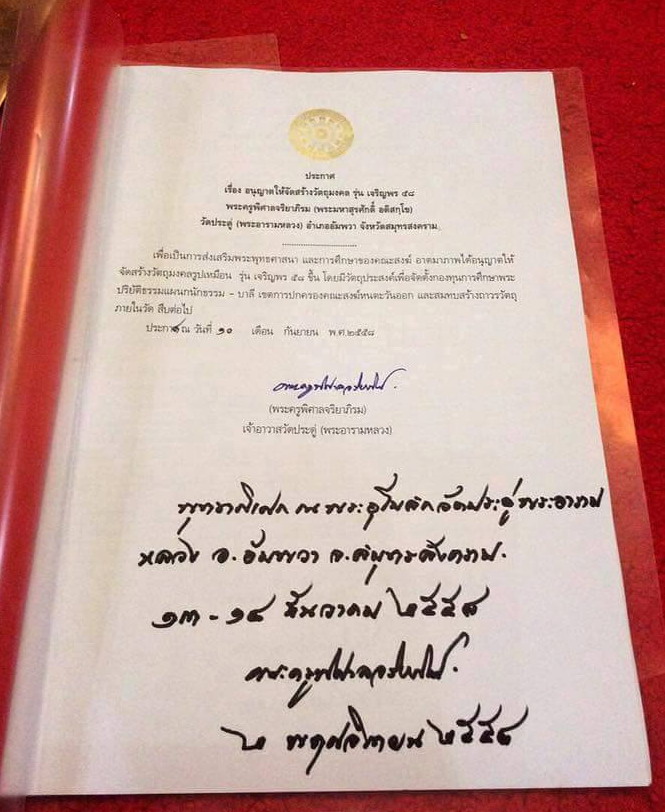 ประกาศ
เรื่อง อนุญาตให้จัดสร้างวัตถุมงคล รุ่น เจริญพร ๕๘
พระครูพิศาลจริยาภิรม (พระมหาสุรศักดิ์ อติสกฺโข)
วัดประดู่ (พระอารามหลวง) อำเภออัมพวา จังหวัดสมุทรสงคราม
เพื่อเป็นการส่งเสริมพระพุทธศาสนา และการศึกษาของคณะสงฆ์ อาตมาภาพได้อนุญาตให้
จัดสร้างวัตถุมงคลรูปเหมือน รุ่น เจริญพร ๕๘ ขึ้น โดยมีวัตถุประสงค์เพื่อจัดตั้งกองทุนการศึกษาพระ
ปริยัติธรรมแผนกนักธรรม - บาลี เขตการปกครองคณะสงฆ์หนตะวันออก และสมทบสร้างถาวรวัตถุ
ภายในวัด สืบต่อไป
ประกาศ ณ วันที่ ๑๐ เดือน กันยายน พ.ศ.๒๕๕๘
(พระครูพิศาลจริยาภิรม)
เจ้าอาวาสวัดประดู่ (พระอารามหลวง)
พุทธาภิเษก ณ พระอุโบสถวัดประดู่ พระอาราม
หลวง อ.อัมพวา จ.สมุทรสงคราม.
๑๓ - ๑๔ ธันวาคม ๒๕๕๘
๒ พฤศจิกายน ๒๕๕๘